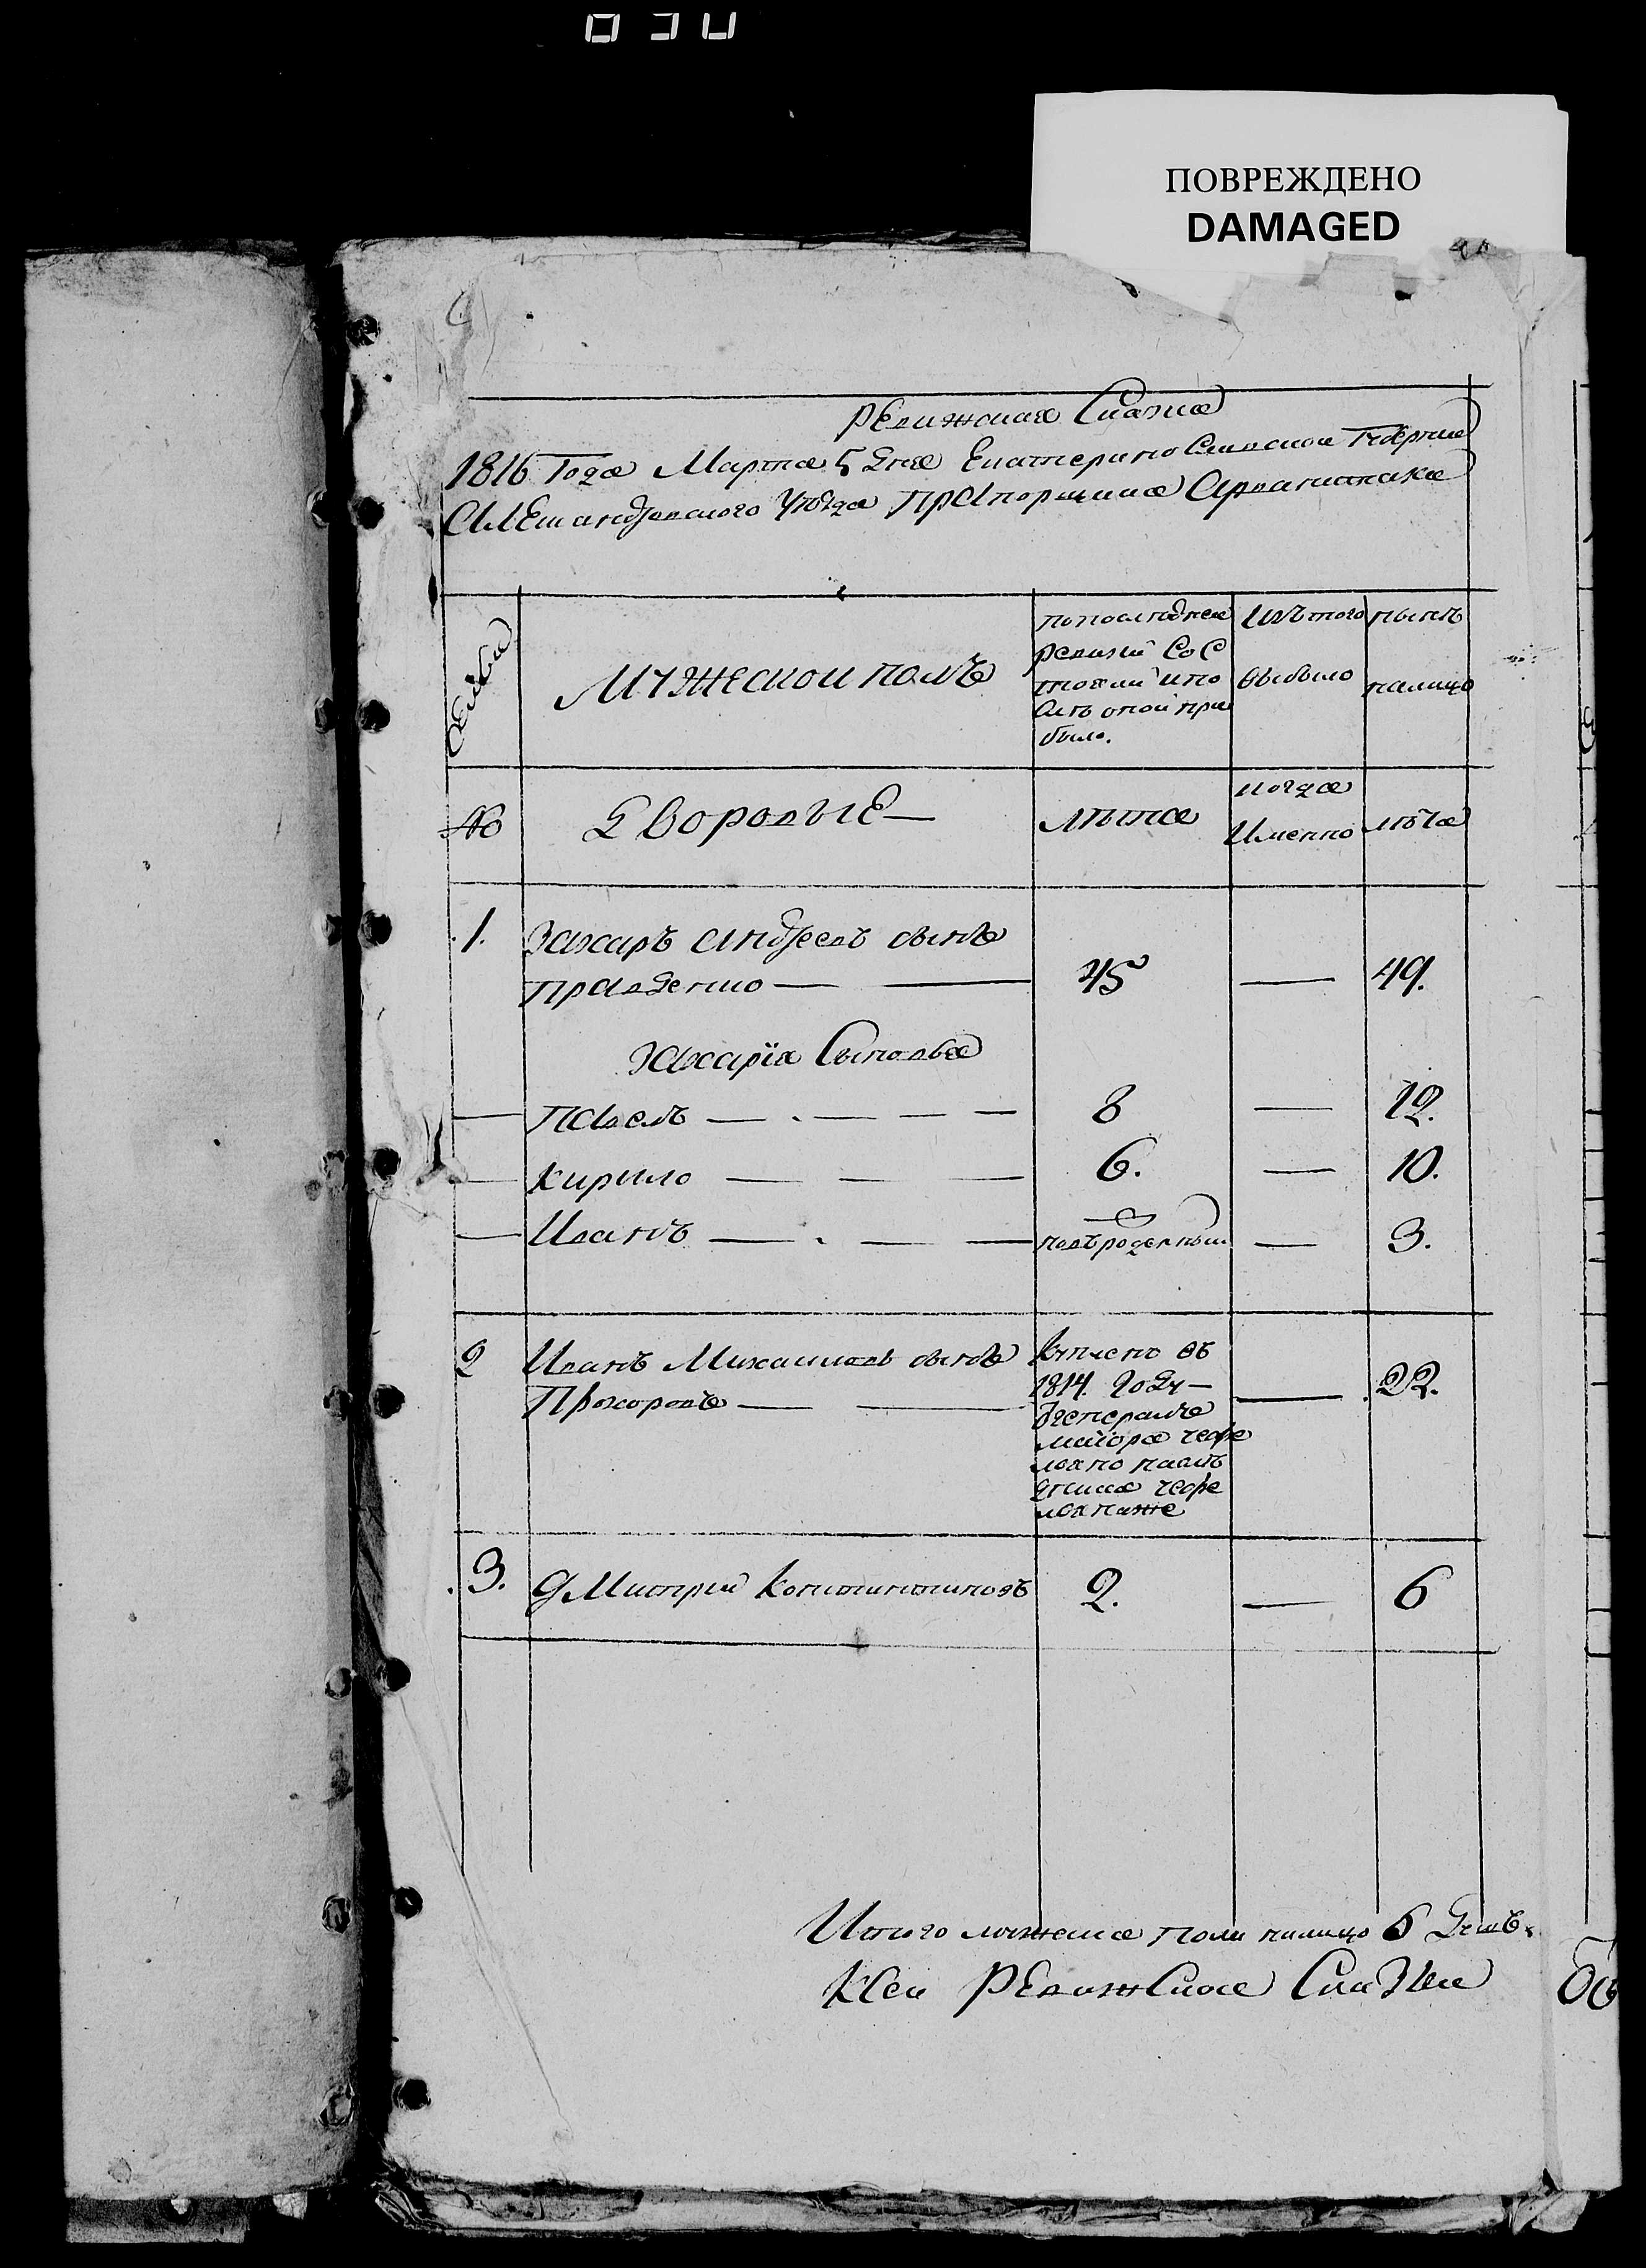 ПОВРЕЖДЕНО
DAMAGED
Ревижская Сказка
1816 Года Марта 5 Дня Екатеринославской Губернии
Александровского уезда Прапорщика
Семьи
Мужеской полъ
по последней
ревизии Сос
тояли и по
слѣ оной при
было.
Изъ того
выбыло
нынѣ
налицо
№
Дворовые
лѣта
когда
Именно
лѣта
1.
Захаръ Андреевъ сынъ
Правденко
45
49.
Захарія Сыновья
Павелъ
8
12.
Кирило
6.
10.
Иванъ
новърожденный
3.
2
Иванъ Михаиловъ сынъ
Прохоровъ
Купленъ въ
1814. Году
у генералъ
маіора
22.
3.
Дмитрий Константиновъ
2.
6
Итого мужеска пола налицо 6 Душъ.
К сей Ревижской Сказки